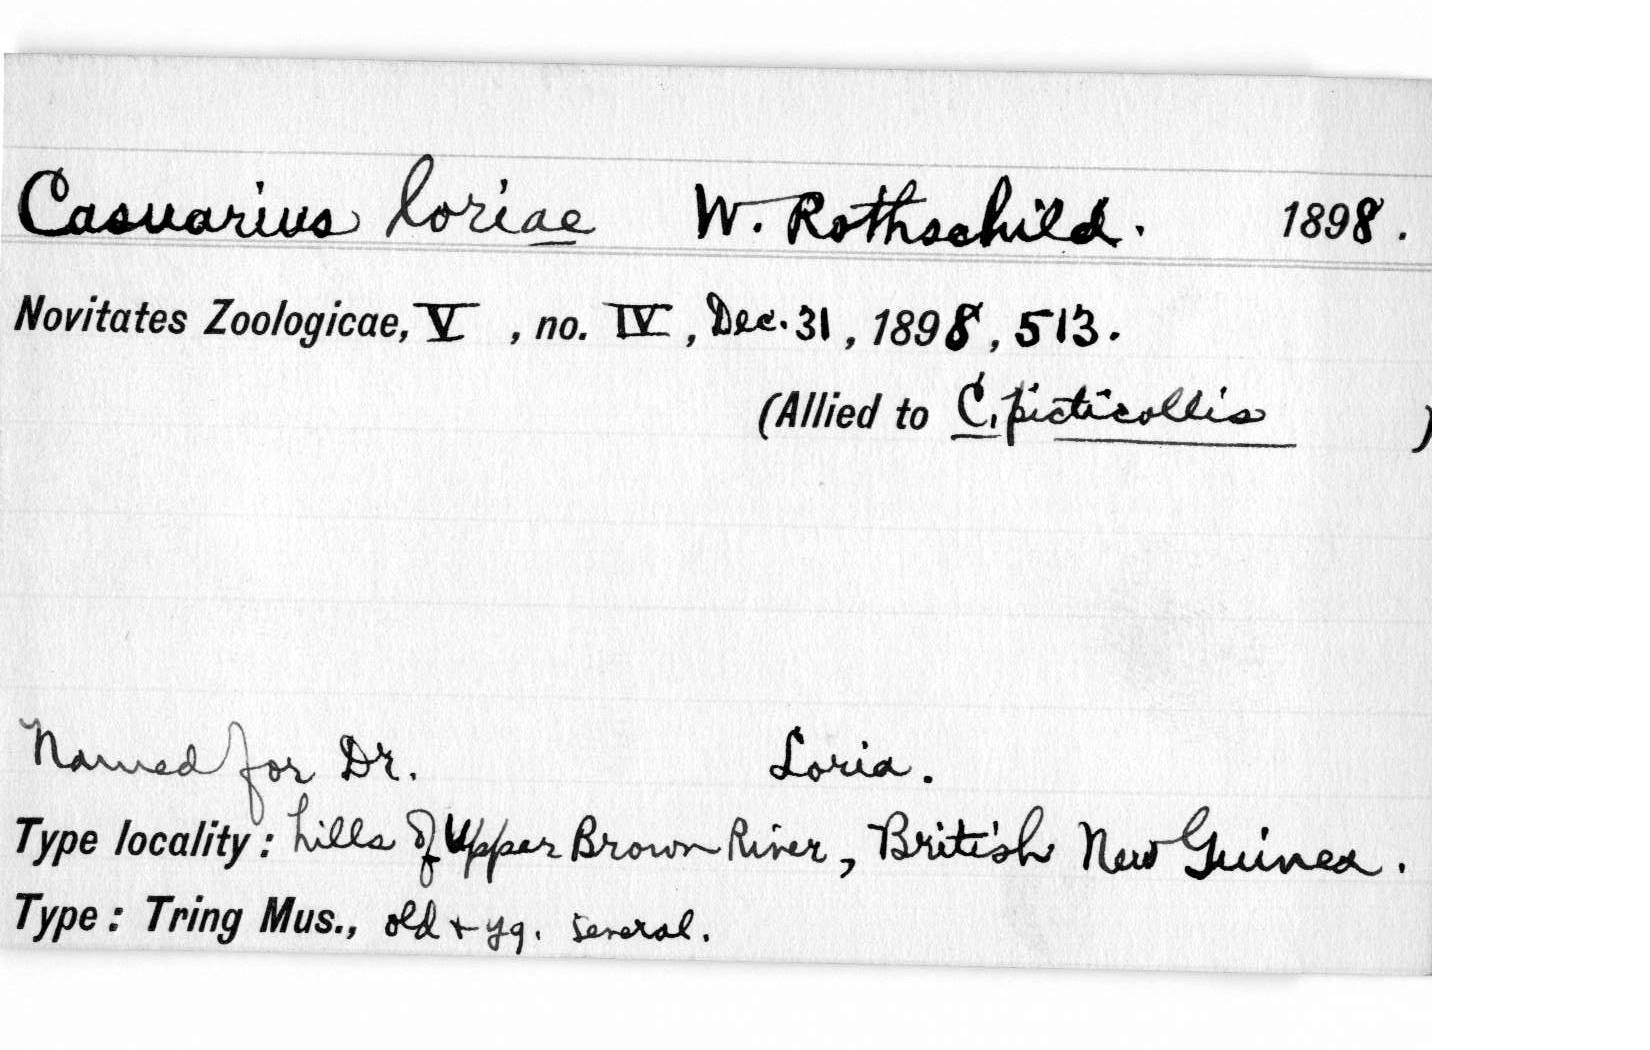 Casuarius loriae W. Rothschild. 1898.
Novitates Zoologicae, V, no. IV, Dec. 31, 1898, 513.
(Allied to C. picticollis )
Named for Dr. Loria.
Type locality: hills of Upper Brown River, British New Guinea.
Type: Tring Mus., old + yg. several.